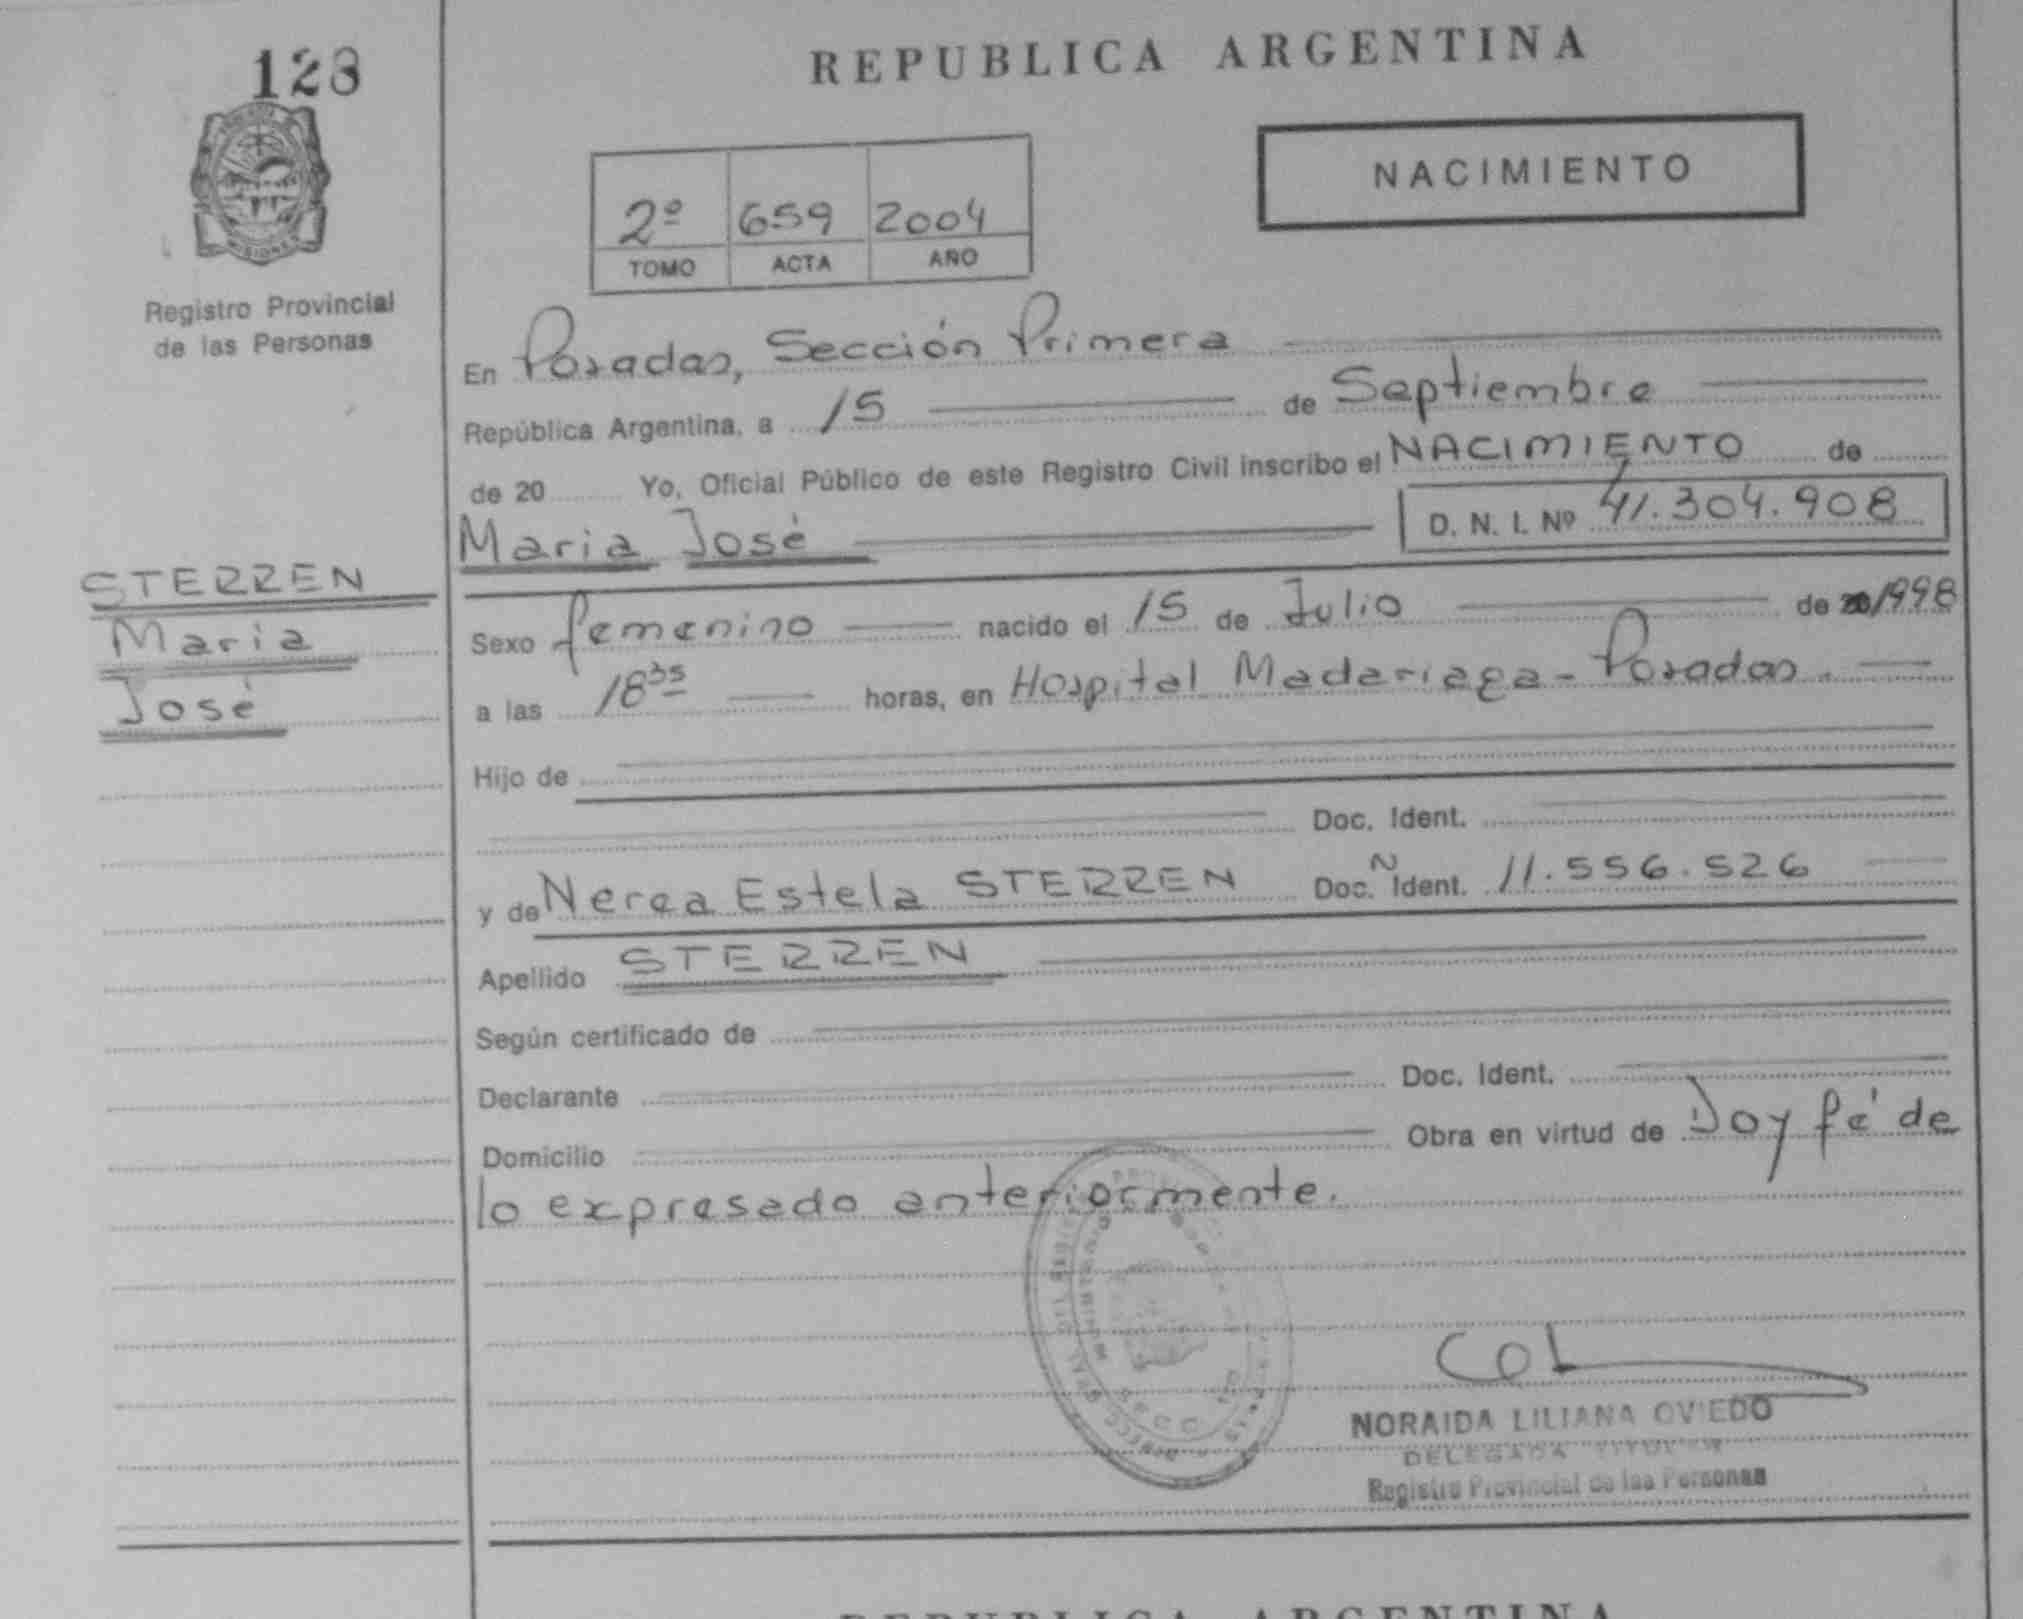 128
REPUBLICA ARGENTINA
NACIMIENTO
2º 659 2004
TOMO ACTA AÑO
MISIONES
Registro Provincial
de las Personas
En Posadas, Sección Primera
República Argentina, a 15 de Septiembre
de 20 Yo, Oficial Público de este Registro Civil inscribo el NACIMIENTO de
Maria José D. N. I. Nº 41.304.908
STERREN
Maria
José
Sexo femenino nacido el 15 de Julio de 1998
a las 18 35 horas, en Hospital Madariaga - Posadas.
Hijo de
Doc. Ident.
y de Nerea Estela STERREN Doc. N Ident. 11.556.526
Apellido STERREN
Según certificado de
Declarante Doc. Ident.
Domicilio Obra en virtud de Doy fé de
lo expresado anteriormente.
NORAIDA LILIANA OVIEDO
DELEGADA TITULAR
Registro Provincial de las Personas
REPUBLICA ARGENTINA